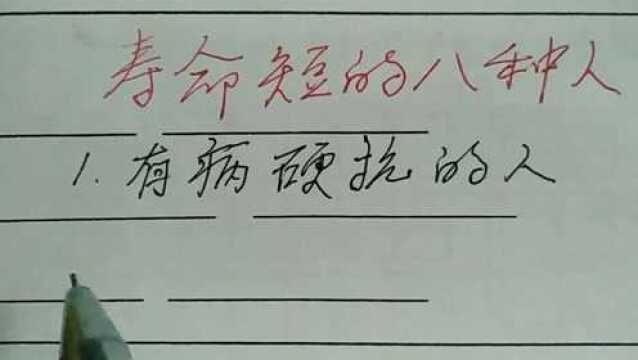 寿命短的八种人
1. 有病硬抗的人